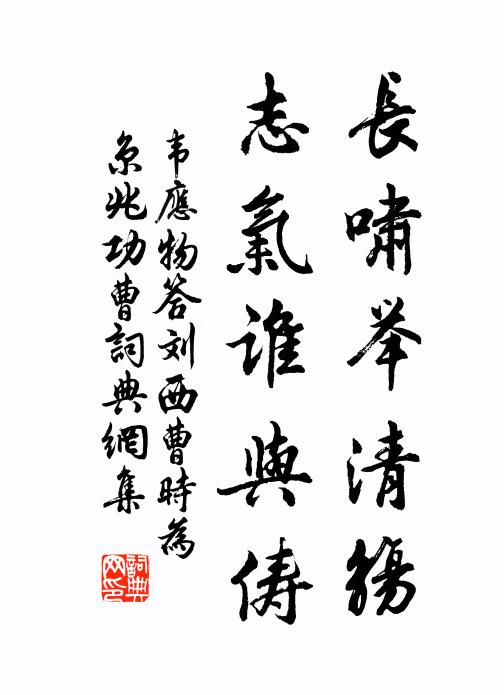 長嘯举清觴
志氣誰與儔
韦應物答刘西曹時為
京兆功曹詞典網集
詞典网印